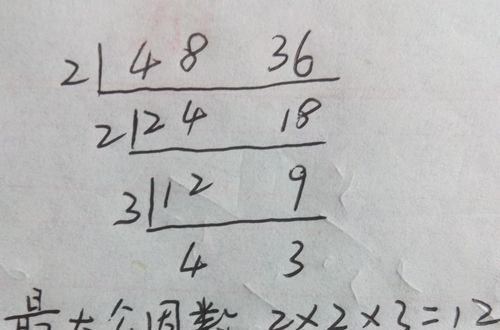 2 48 36
2 24 18
3 12 9
4 3
最大公因数 2×2×3=12